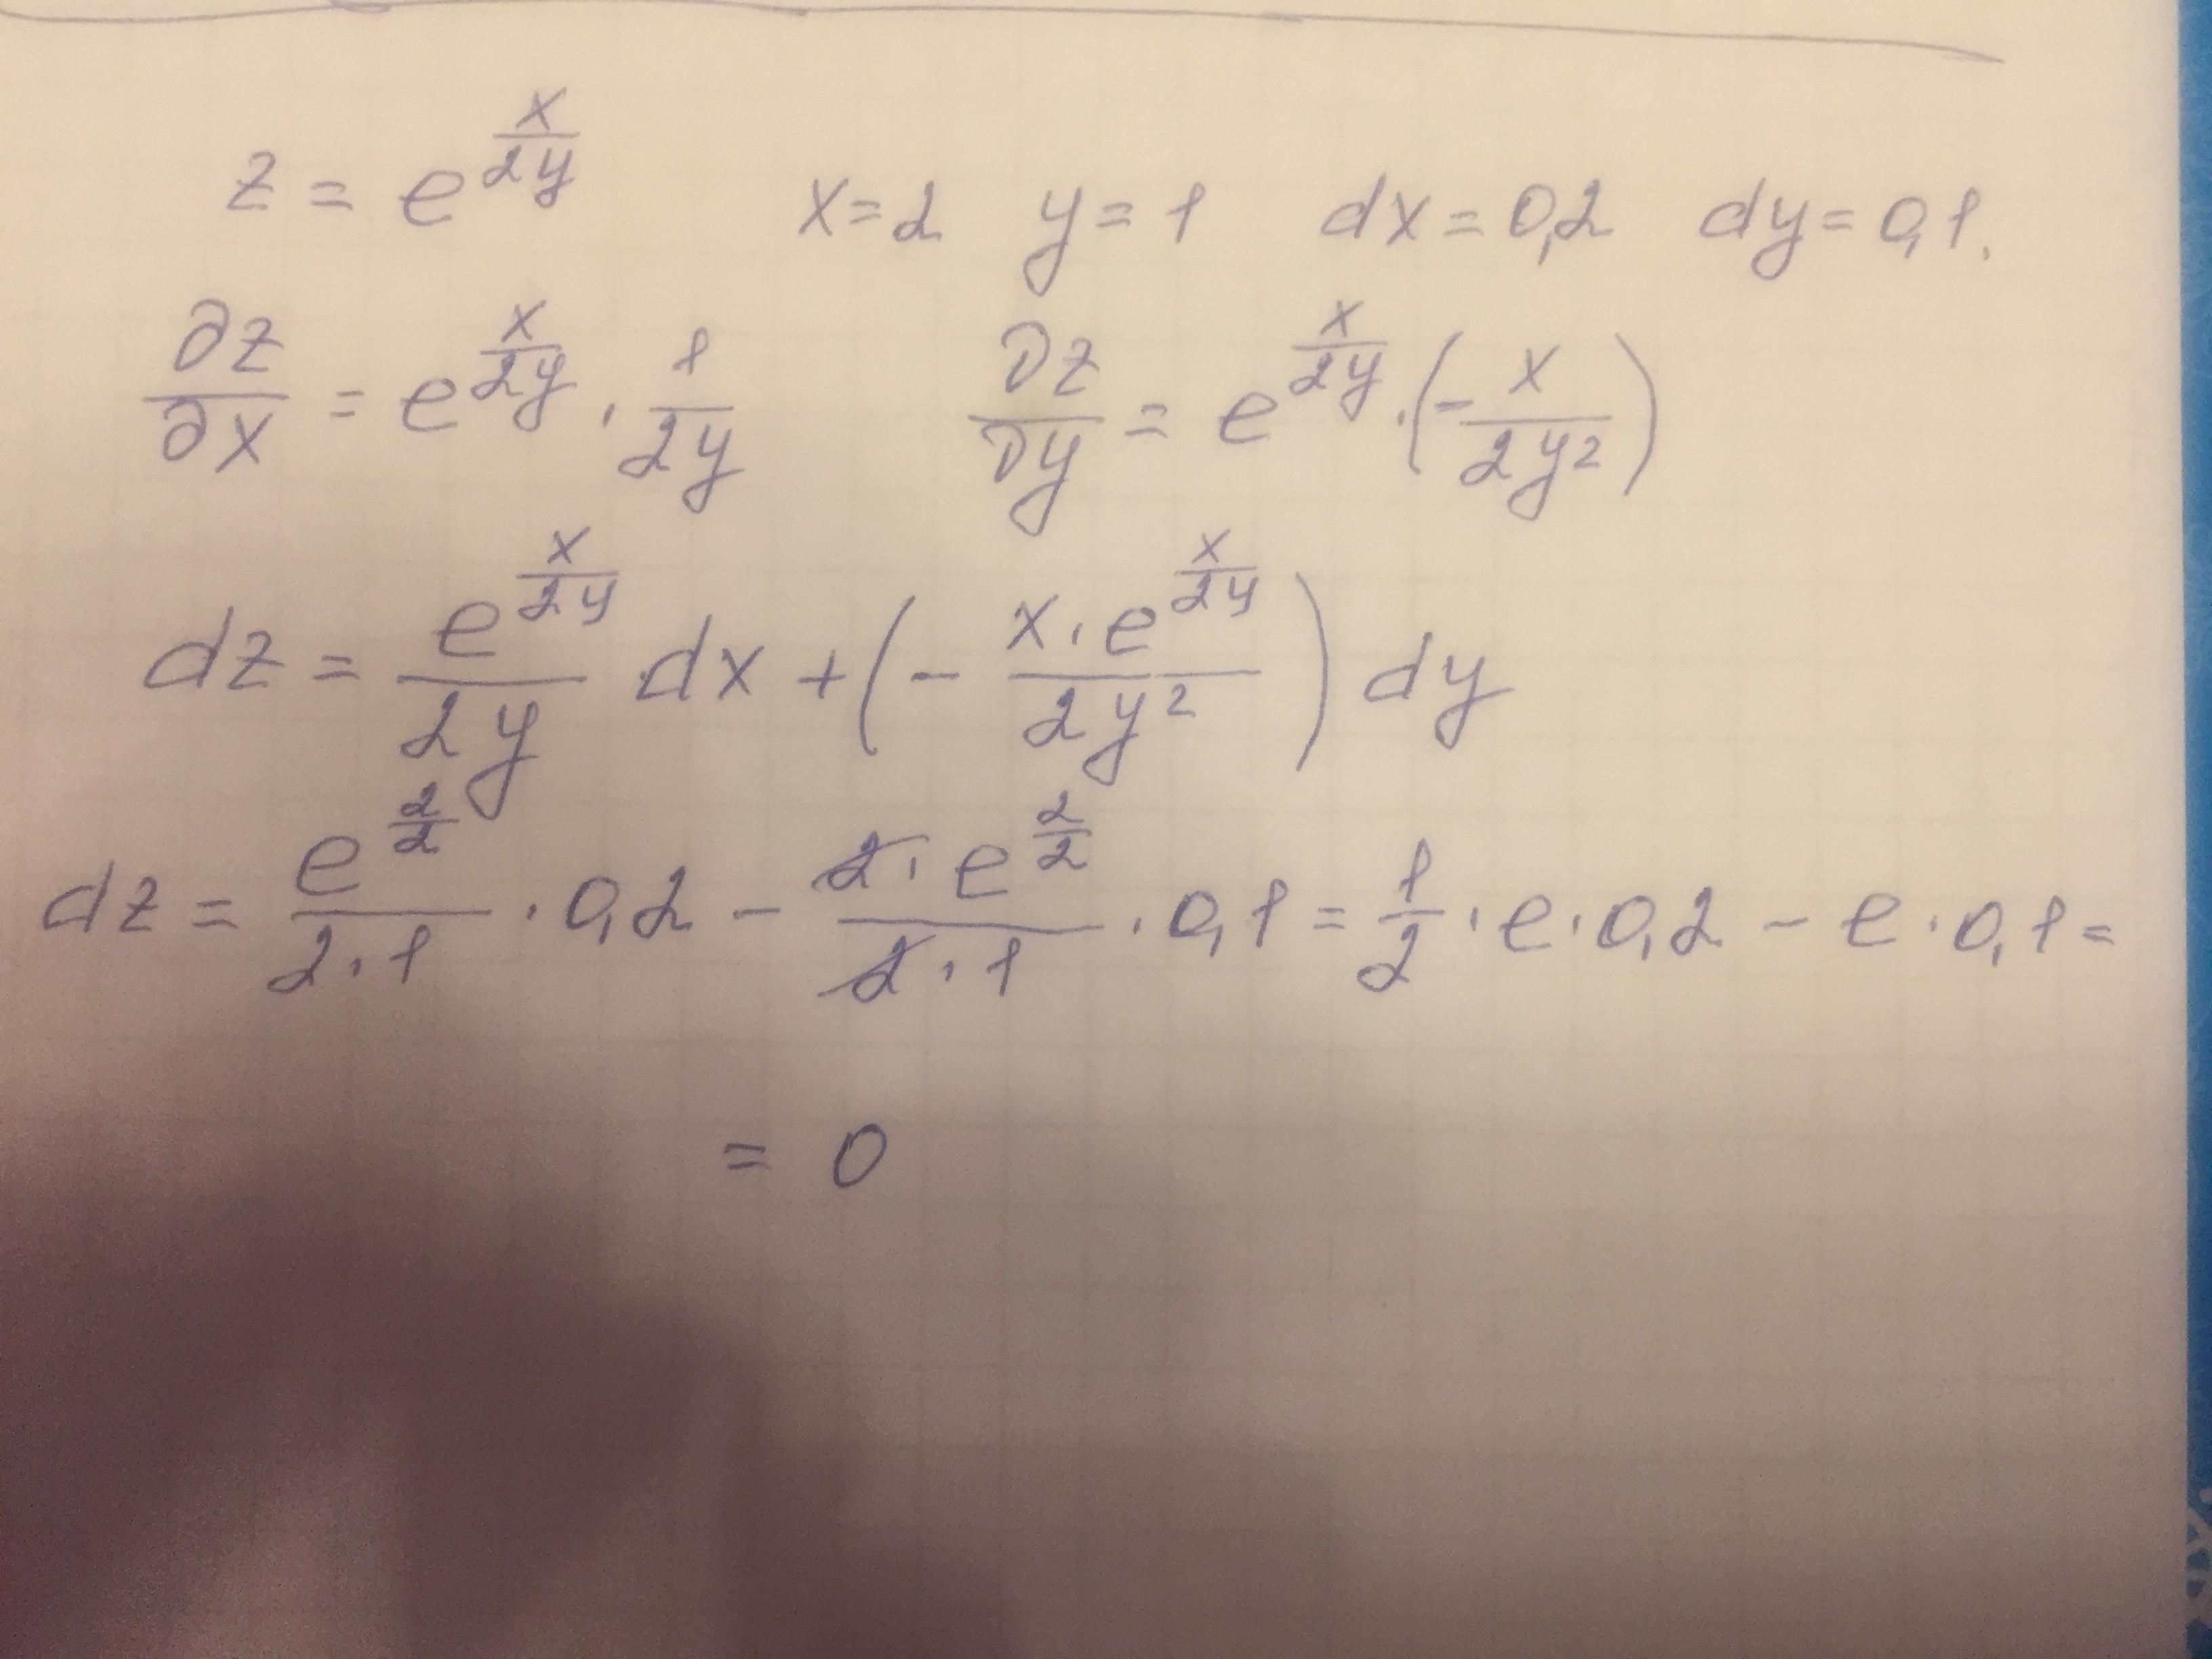 z = e^{x/2y}   x=2   y=1   dx=0,2   dy=0,1.
∂z/∂x = e^{x/2y} · 1/2y   ∂z/∂y = e^{x/2y} · (-x/2y²)
dz = e^{x/2y}/2y dx + (- x·e^{x/2y}/2y²) dy
dz = e^{2/2}/2·1 · 0,2 - 2·e^{2/2}/2·1 · 0,1 = 1/2 · e · 0,2 - e · 0,1 =
= 0